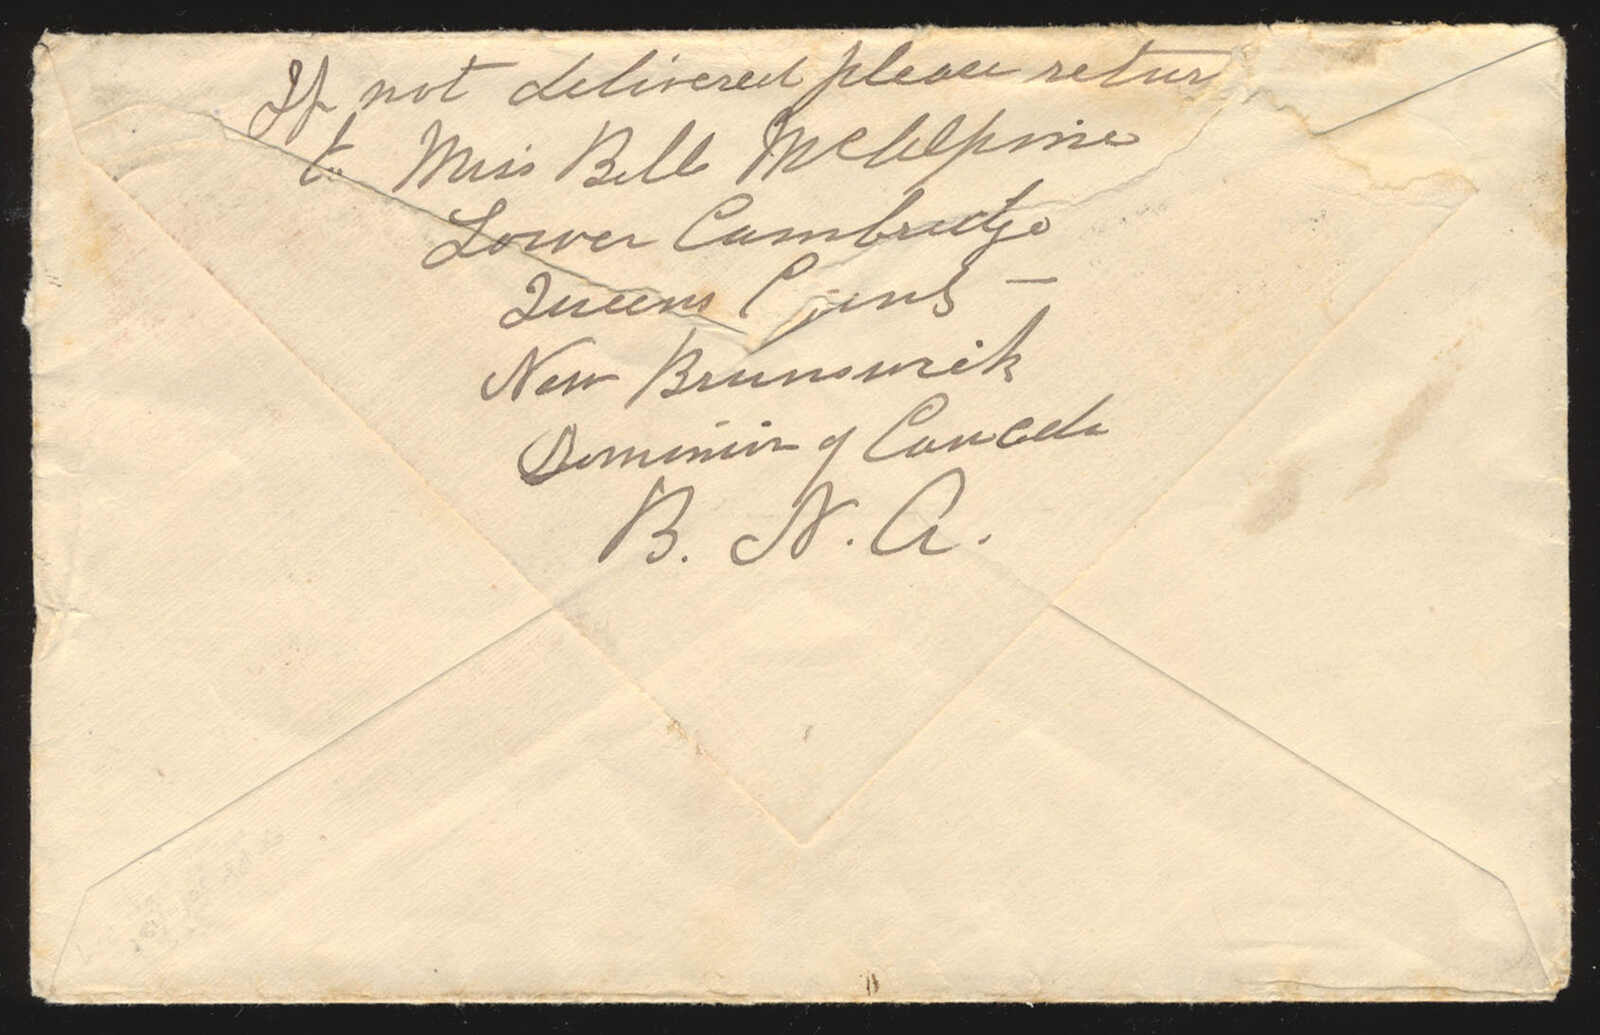 If not delivered please return
to Miss Belle McAlpine
Lower Cambridge
Queens County
New Brunswick
Dominion of Canada
B. N. A.